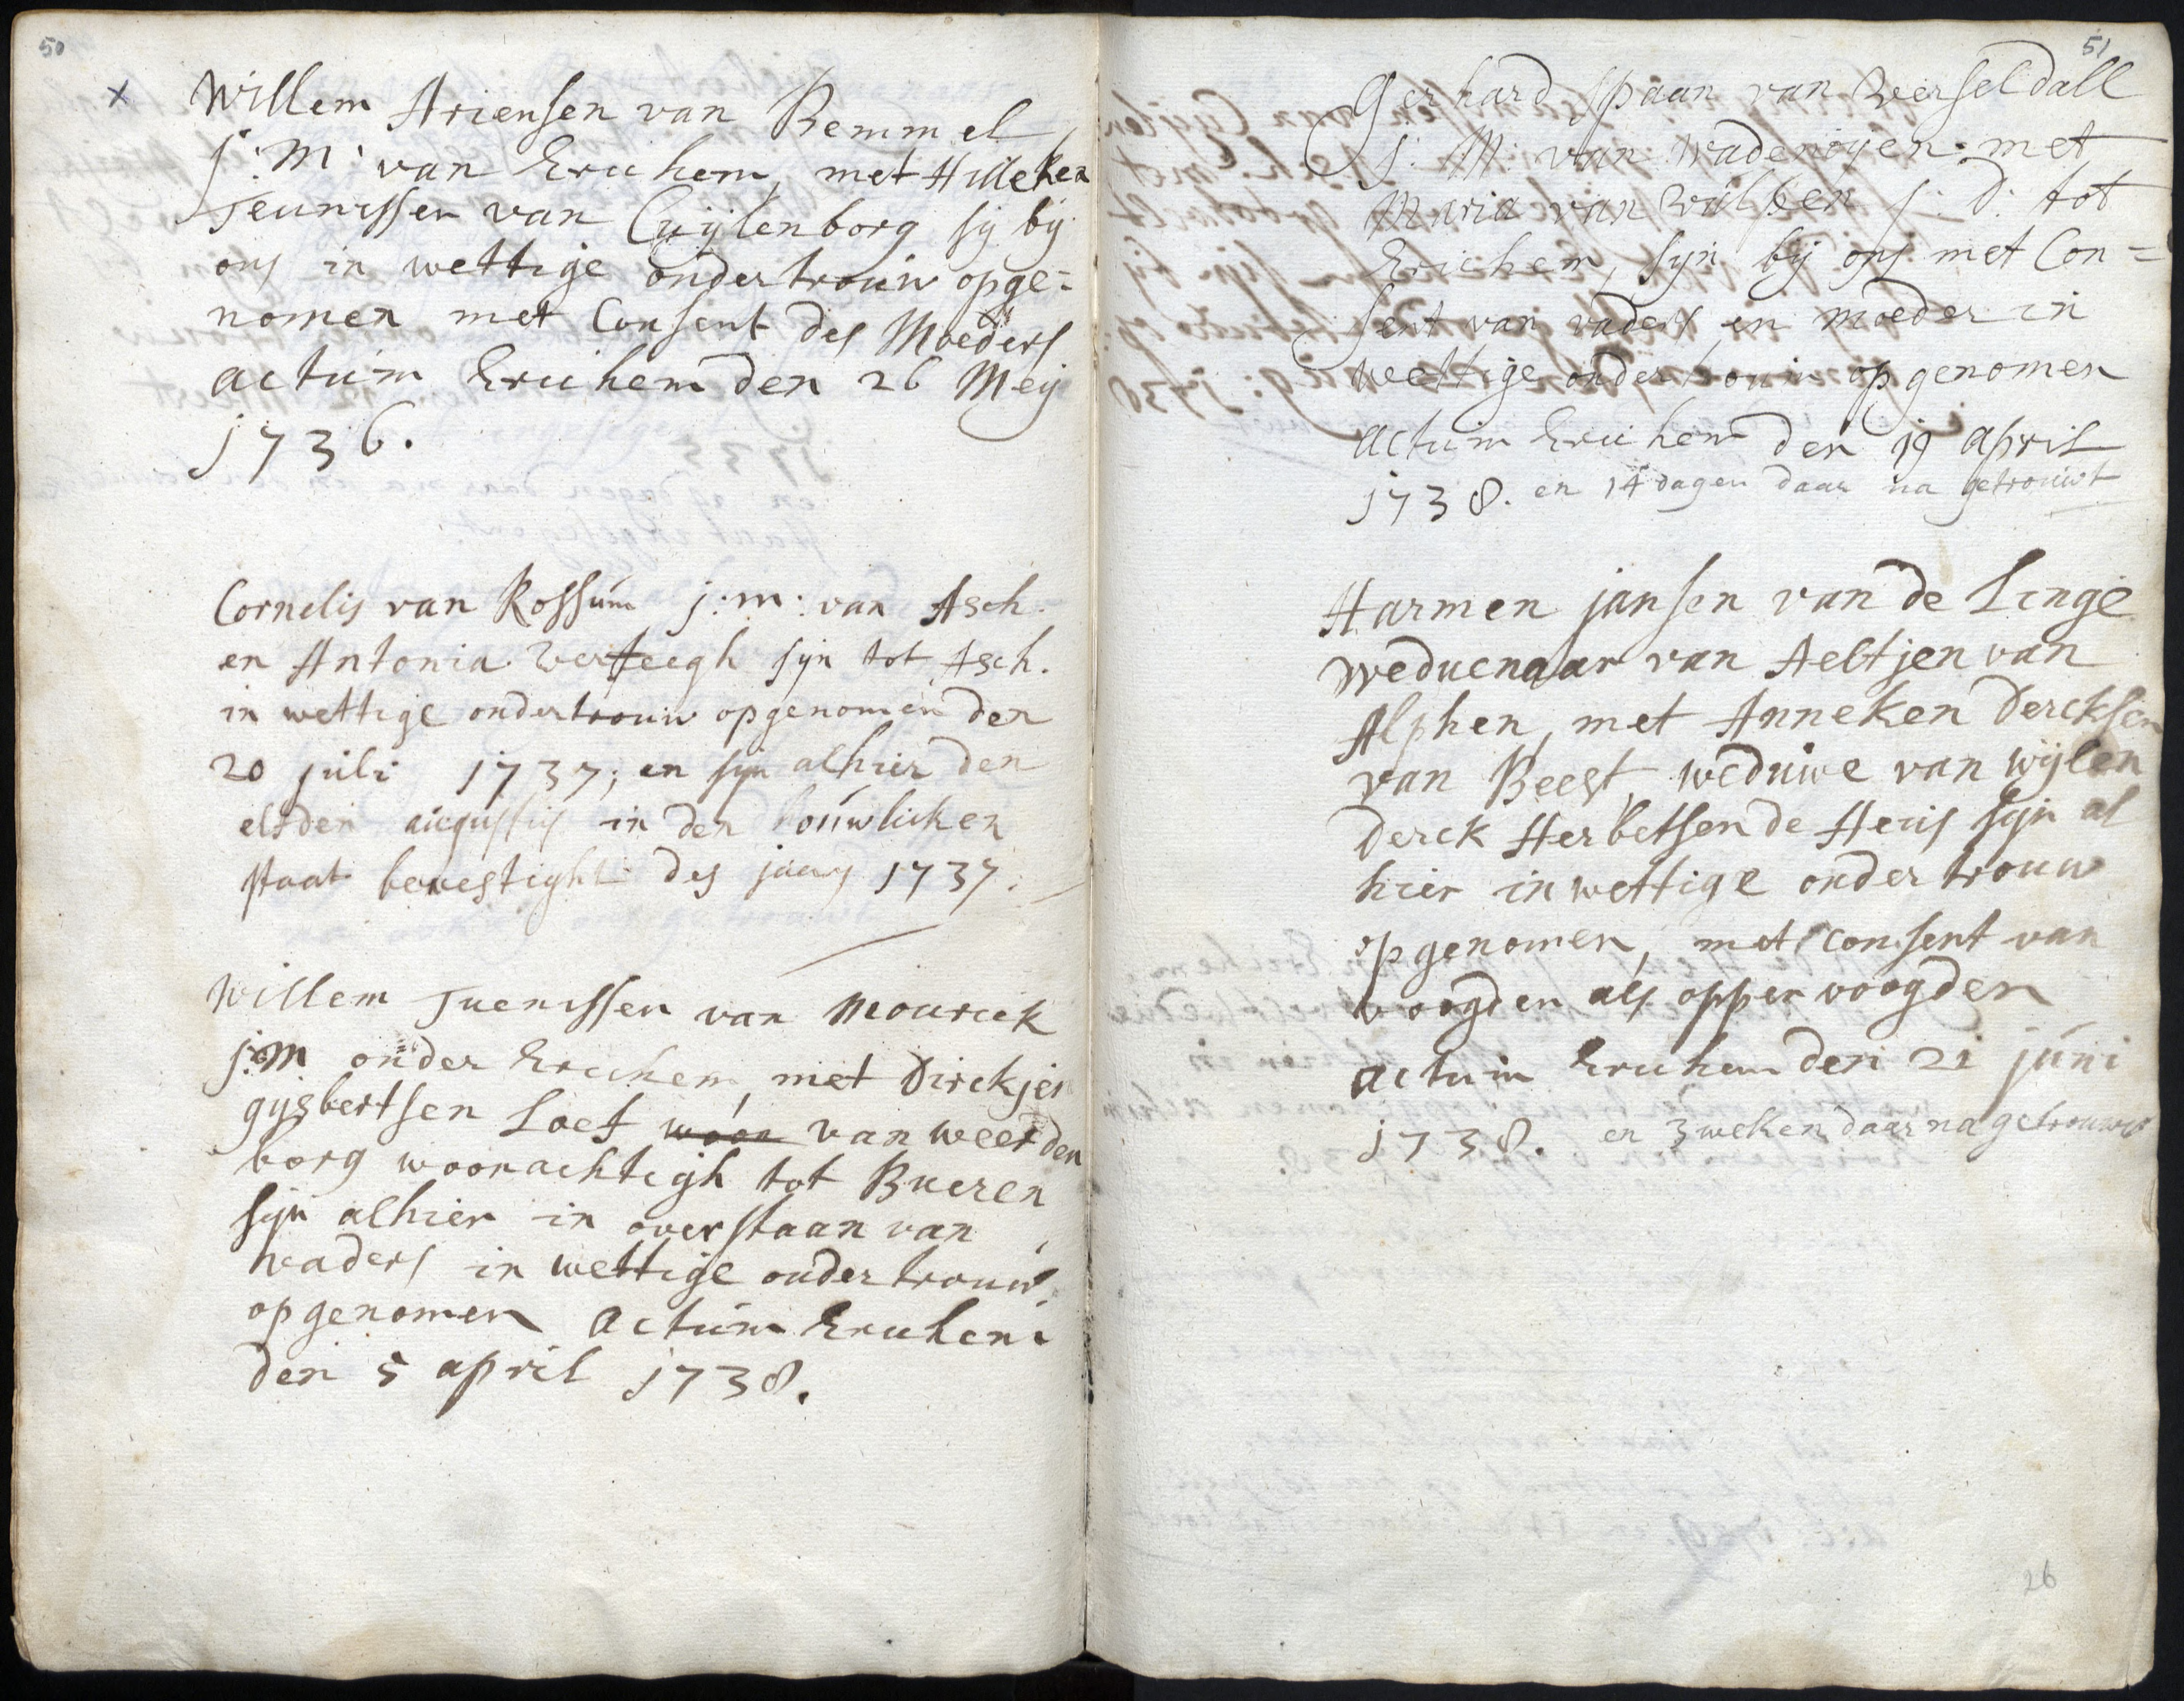 50
x
Willem Ariensen van Bemmel
j: M: van Erichem, met Hilleken
Teunissen van Cuijlenborg sij bij
ons in wettige ondertrouw opge=
nomen met Consent des Moeders
actum Erichem den 26 Meij
1736.
Cornelis van Rossum j: m: van Asch.
en Antonia Versteegh sijn tot Asch.
in wettige ondertrouw opgenomen den
20 juli 1737, en sijn alhier den
elfden augustus in den houwlicken
staat bevestight des jaars 1737.
Willem Tuenissen van Mourick
j: M onder Erichem, met Dirckjen
gijsbertsen Loef woon van weerden
borg woonachtigh tot Bueren
sijn alhier in overstaan van
vaders in wettige ondertrouw
opgenomen Actum Erichem
den 5 april 1738.
51
Gerhard Spaan van Versseldall
j: M: van Wadenoijen. met
Maria van Wilssen j: d: tot
Erichem, sijn bij ons met Con=
sent van vaders en moeder in
wettige ondertrouw opgenomen
Actum Erichem den 19 April
1738. en 14 dagen daar na getrouwt
Harmen jansen van de Linge
weduenaar van Aeltjen van
Alphen, met Anneken Dercksen
van Beest weduwe van wijlen
Derck Herbetsen de Heus sijn al
hier in wettige ondertrouw
opgenomen, met consent van
voogden als opper voogden
actum Erichem den 21 juni
1738. en 3 weken daar na getrouwt
26